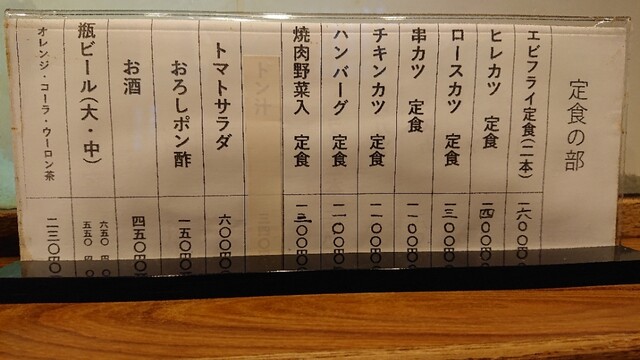 定食の部
エビフライ定食(二本) 一六〇〇円
ヒレカツ 定食 一四〇〇円
ロースカツ 定食 一三〇〇円
串カツ 定食 一一〇〇円
チキンカツ 定食 一一〇〇円
ハンバーグ 定食 一一〇〇円
焼肉野菜入 定食 一三〇〇円
トン汁
トマトサラダ 六〇〇円
おろしポン酢 一五〇円
お酒 四五〇円
瓶ビール(大・中) 六五〇円 五五〇円
オレンジ・コーラ・ウーロン茶 二三〇円